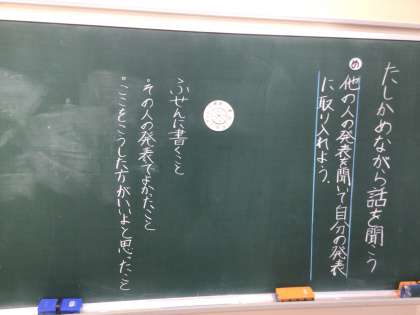 たしかめながら話を聞こう
め 他の人の発表を聞いて自分の発表
に取り入れよう.
ふせんに書くこと
・その人の発表でよかったこと
・ここをこうした方がいいよと思ったこと